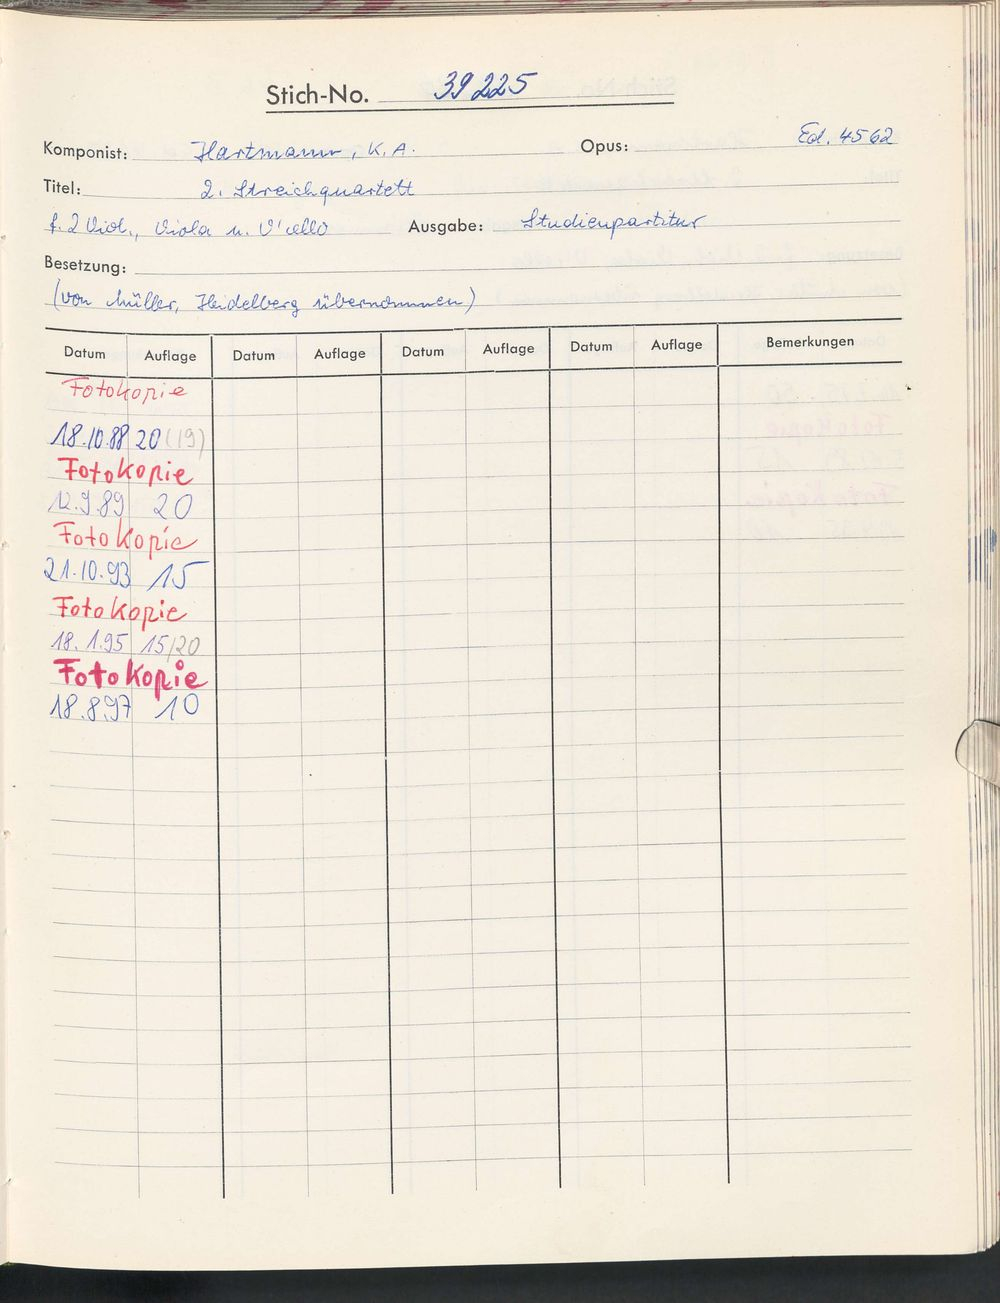 Stich-No. 39225
Ed. 4562
Komponist: Hartmann, K. A. Opus:
Titel: 2. Streichquartett
f. 2 Viol., Viola u. V'cello Ausgabe: Studienpartitur
Besetzung:
(von Müller, Heidelberg übernommen)
Datum Auflage Datum Auflage Datum Auflage Datum Auflage Bemerkungen
Fotokopie
18.10.88 20 (19)
Fotokopie
12.9.89 20
Fotokopie
21.10.93 15
Fotokopie
18.1.95 15/20
Fotokopie
18.8.97 10